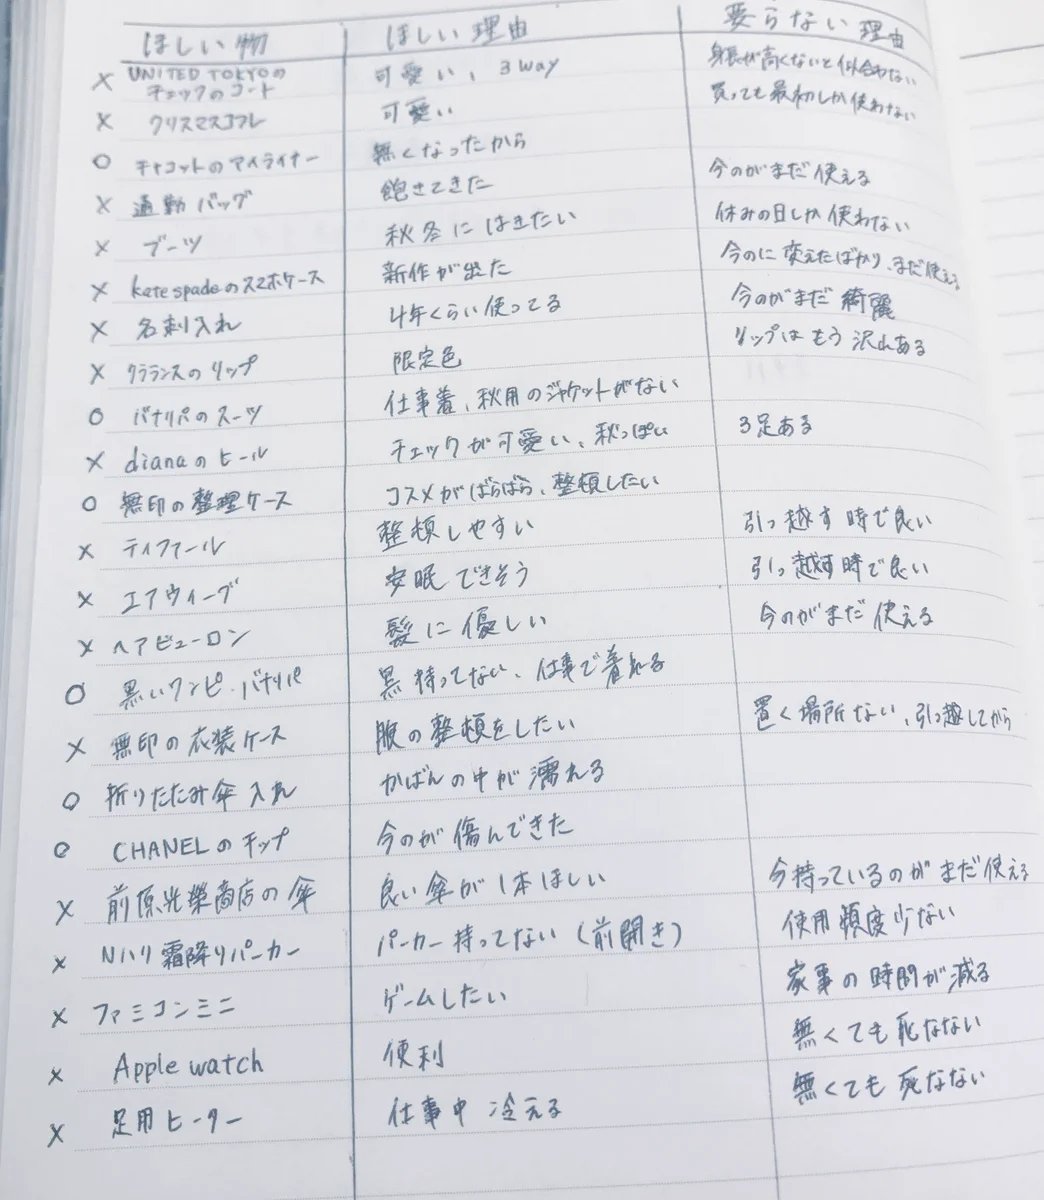 ほしい物 ほしい理由 要らない理由
× UNITED TOKYOの チェックのコート 可愛い、3way 身長が高くないと似合わない
× クリスマスコフレ 可愛い 買っても最初しか使わない
○ チャコットのアイライナー 無くなったから
× 通勤バッグ 飽きてきた 今のがまだ使える
× ブーツ 秋冬にはきたい 休みの日しか使わない
× kate spadeのスマホケース 新作が出た 今のに変えたばかり、まだ使える
× 名刺入れ 4年くらい使ってる 今のがまだ綺麗
× クラランスのリップ 限定色 リップはもう沢山ある
○ バナリパのスーツ 仕事着、秋用のジャケットがない
× dianaのヒール チェックが可愛い、秋っぽい 3足ある
○ 無印の整理ケース コスメがばらばら、整頓したい
× ティファール 整頓しやすい 引っ越す時で良い
× エアウィーブ 安眠できそう 引っ越す時で良い
× ヘアビューロン 髪に優しい 今のがまだ使える
○ 黒いワンピ・バナリパ 黒持ってない、仕事で着れる
× 無印の衣装ケース 服の整頓をしたい 置く場所ない、引っ越してから
○ 折りたたみ傘入れ かばんの中が濡れる
○ CHANELのチップ 今のが傷んできた
× 前原光榮商店の傘 良い傘が1本ほしい 今持っているのがまだ使える
× Nハリ霜降りパーカー パーカー持ってない(前開き) 使用頻度少ない
× ファミコンミニ ゲームしたい 家事の時間が減る
× Apple watch 便利 無くても死なない
× 足用ヒーター 仕事中冷える 無くても死なない